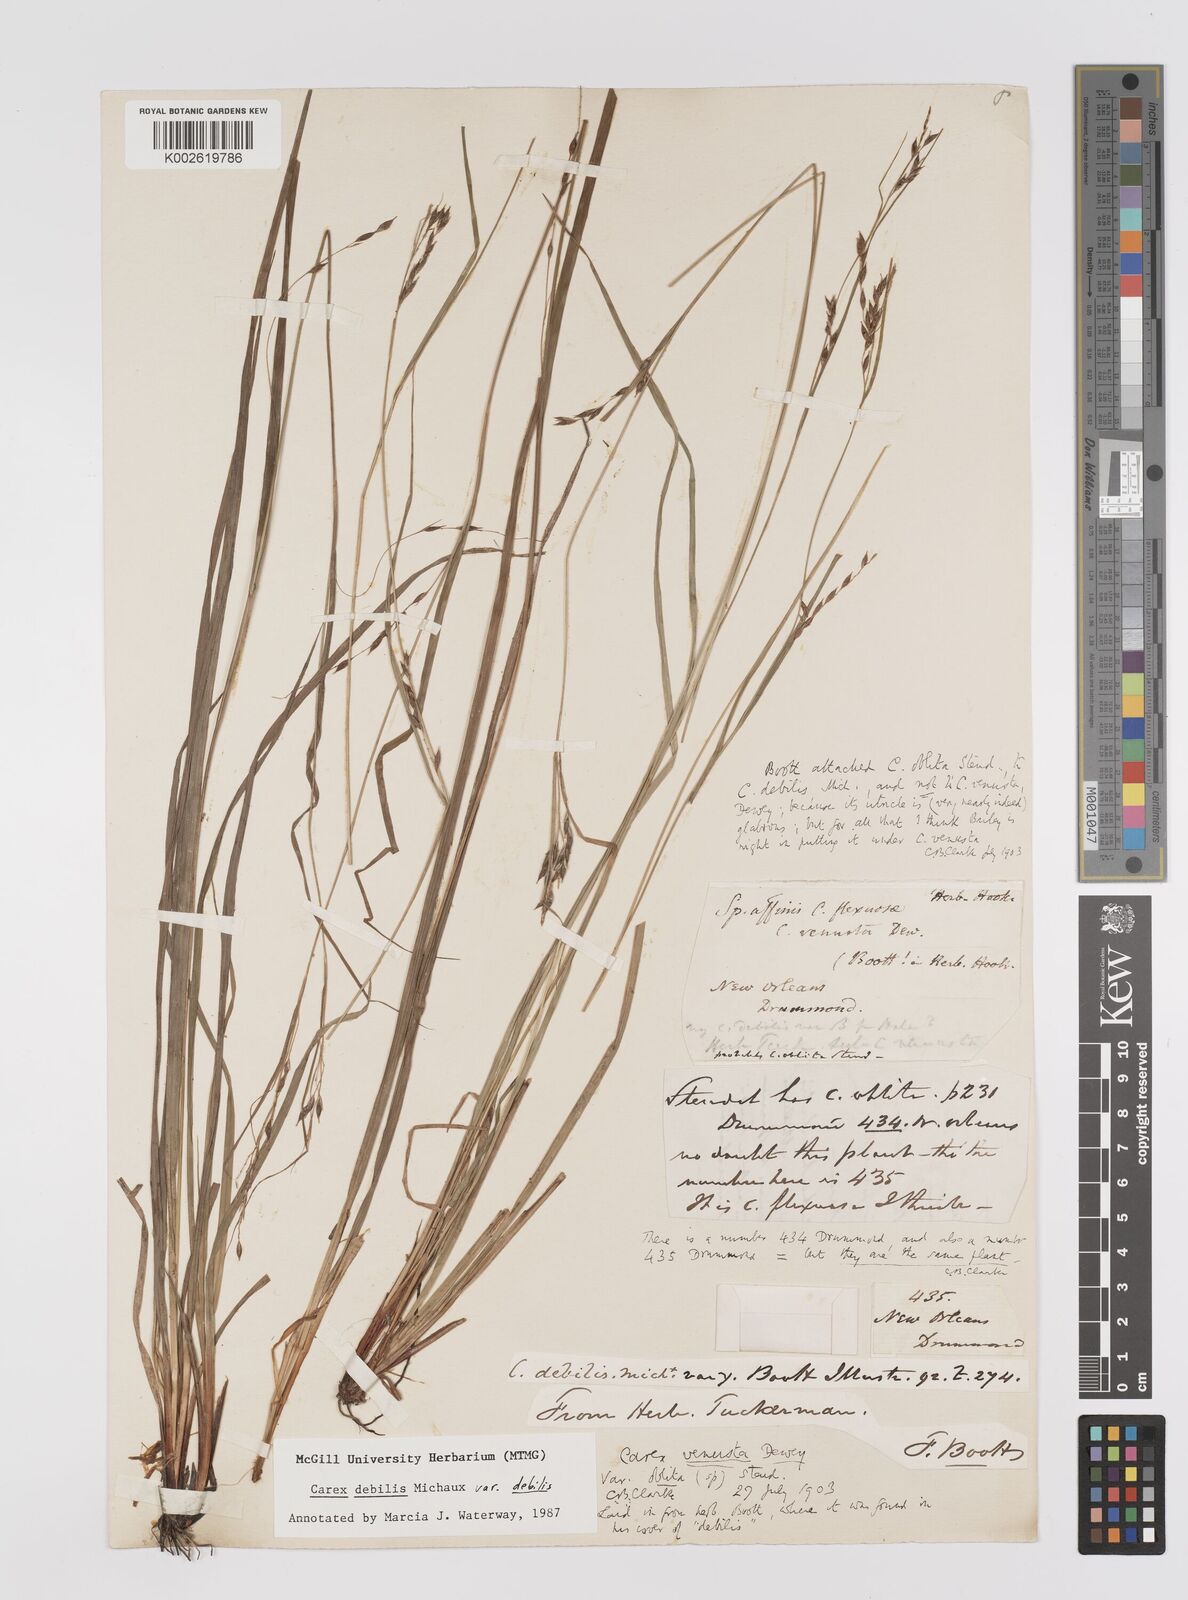 ROYAL BOTANIC GARDENS KEW
K002619786
Boott attached C. oblita Steud., to
C. debilis, Mich., and not to C. venusta,
Dewey; because its utricle is (very nearly indeed)
glabrous; but for all that I think Bailey is
right in putting it under C. venusta
C.B.Clarke July 1903
Herb. Hook.
Sp. affinis C. flexuosæ
C. venusta Dew.
(Boott! in Herb. Hook.
New Orleans
Drummond.
C. debilis var B
Herb. C. venusta
probably C. oblita Steud –
Steudel has C. oblita. p231
Drummond 434. N. orleans
no doubt this plant – tho the
number here is 435
It is C. flexuosa I think –
There is a number 434 Drummond and also a number
435 Drummond = but they are the same plant –
C.B.Clarke
435.
New Orleans
Drummond
C. debilis. Michx var γ. Boott Illustr. 92. t. 274.
From Herb. Tuckerman.
F. Boott
McGill University Herbarium (MTMG)
Carex debilis Michaux var. debilis
Annotated by Marcia J. Waterway, 1987
Carex venusta Dewey
Var. oblita (sp) Steud.
C.B.Clarke 27 July 1903
Laid in from herb. Boott, where it was found in
his cover of "debilis"
inches
cm
Don Williams
M001047
Royal Botanic Gardens
Kew
copyright reserved
0 1 2 3 4 5 6 7 8 9 10
cm